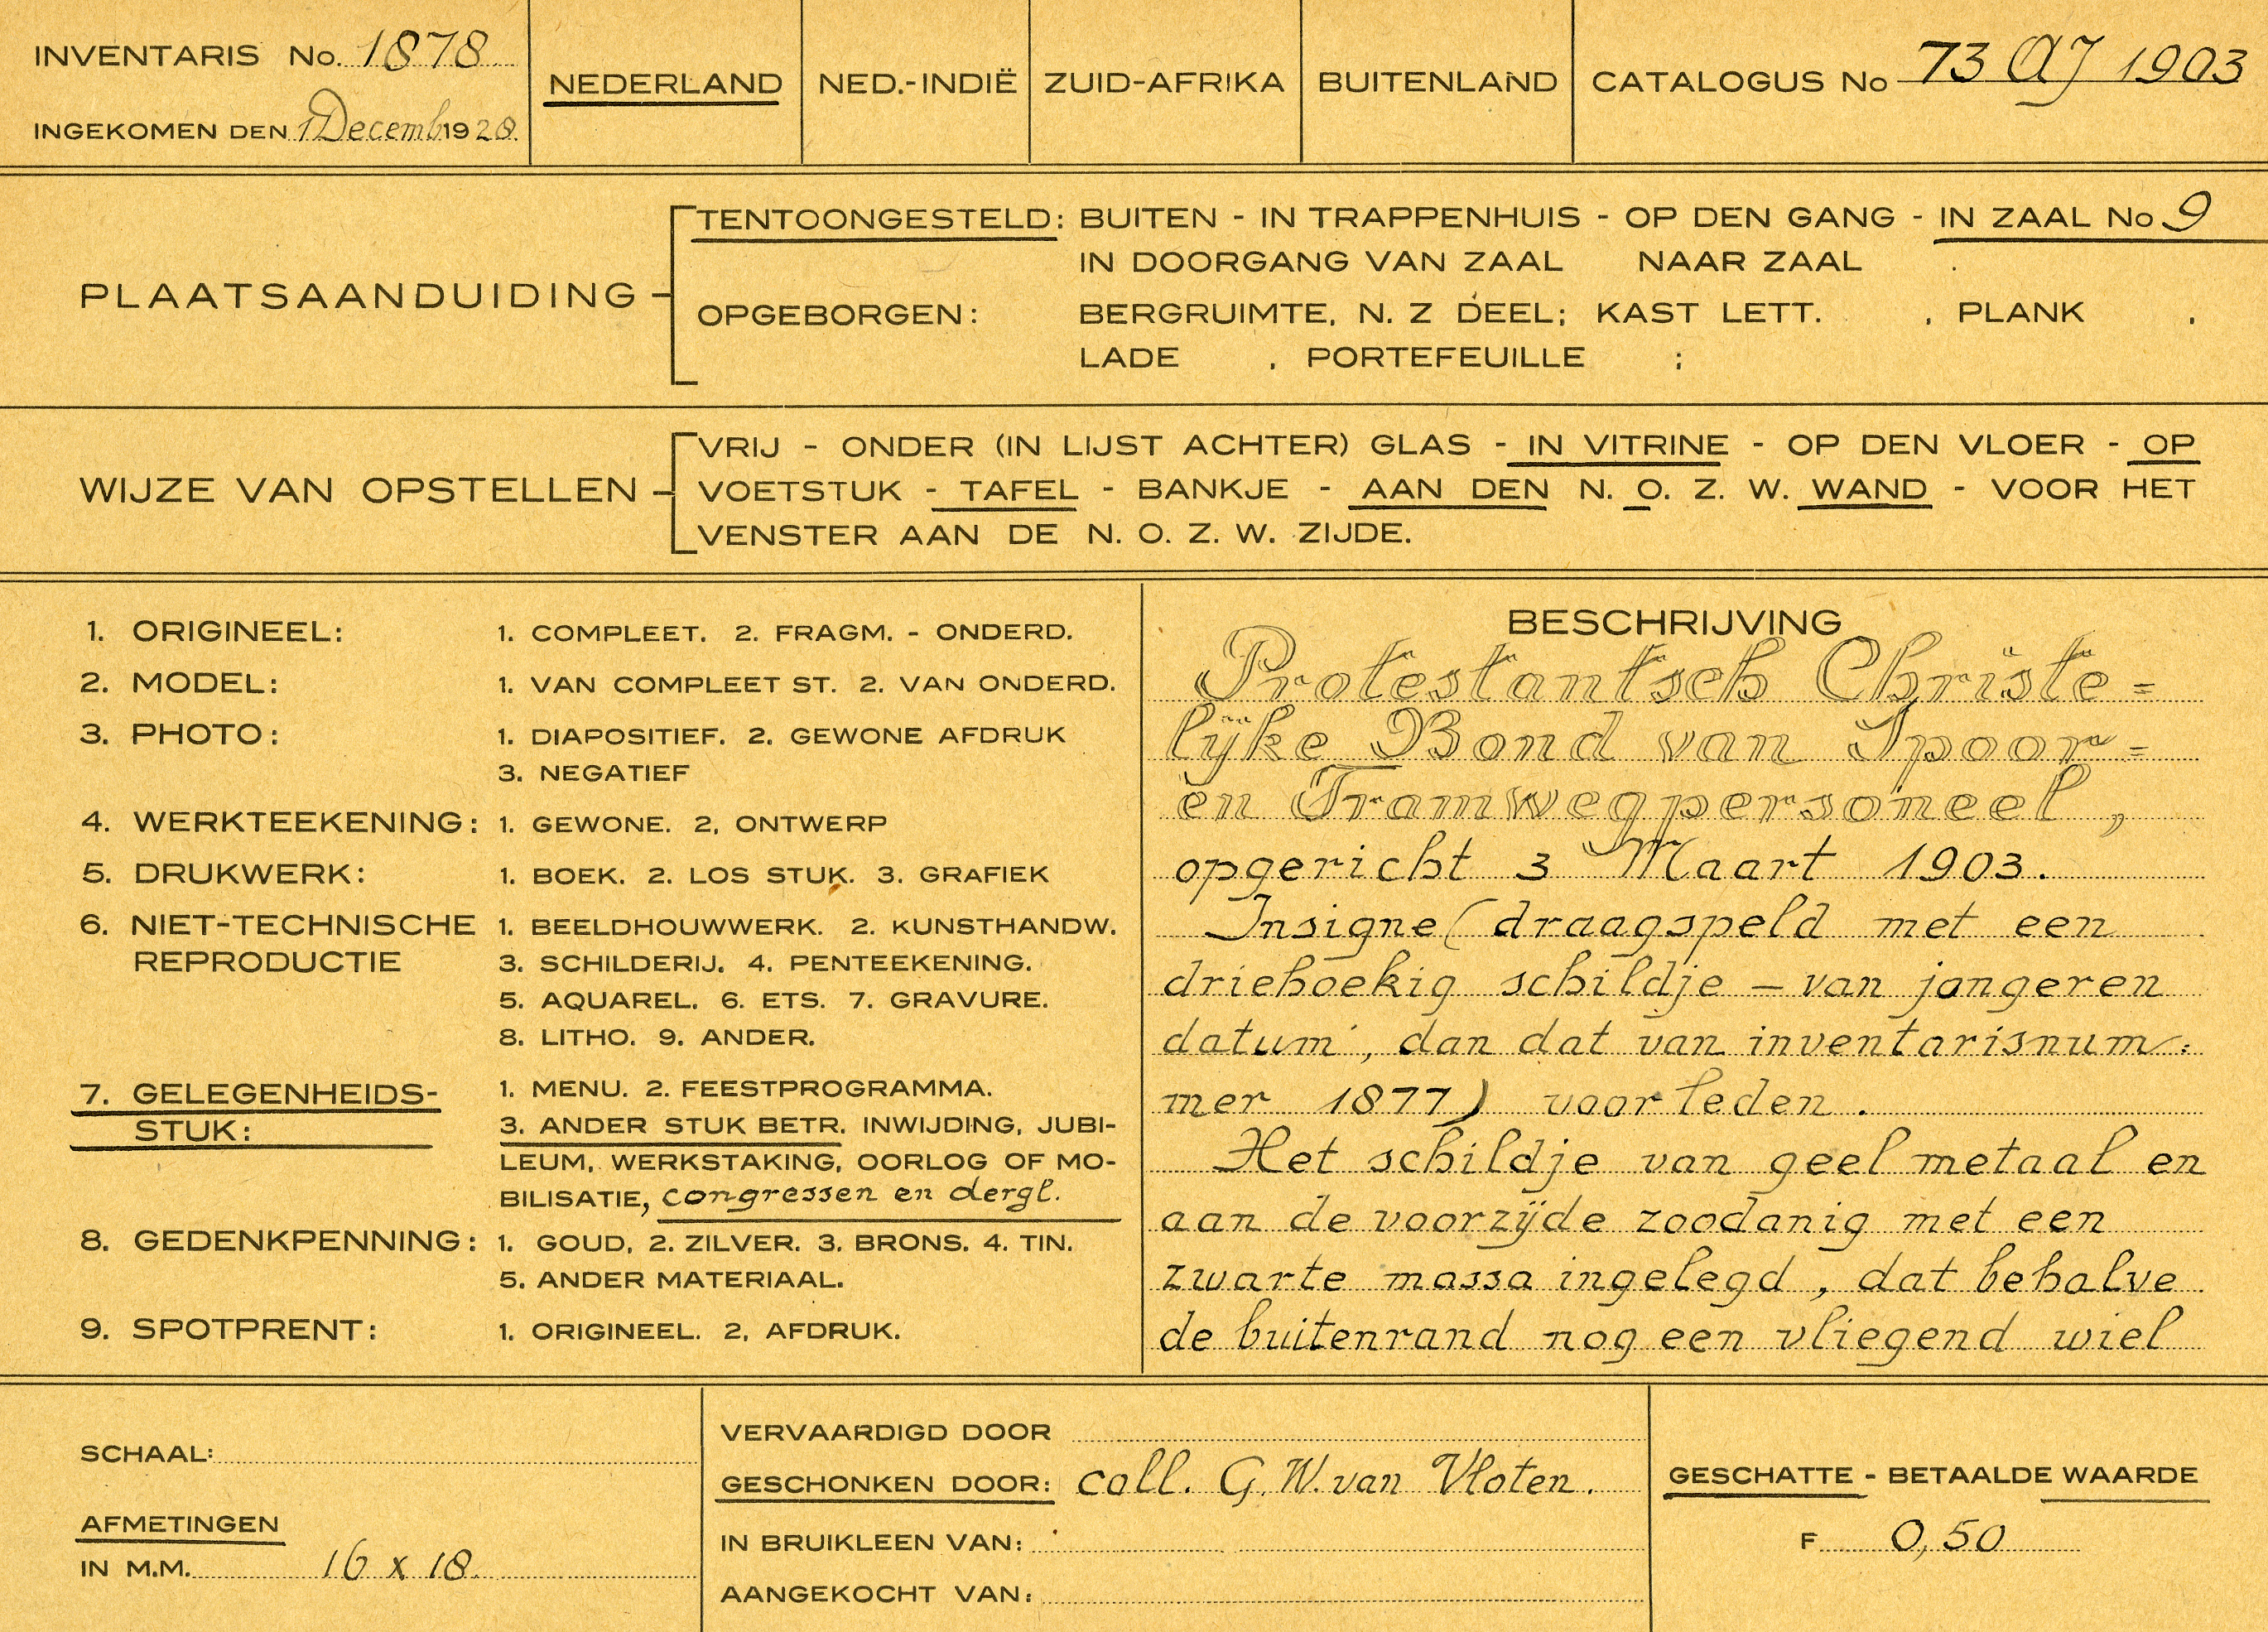 INVENTARIS No. 1878
INGEKOMEN DEN 1 Decemb 1928.
NEDERLAND
NED.-INDIË
ZUID-AFRIKA
BUITENLAND
CATALOGUS No 73 AJ 1903
PLAATSAANDUIDING
TENTOONGESTELD: BUITEN - IN TRAPPENHUIS - OP DEN GANG - IN ZAAL No 9
IN DOORGANG VAN ZAAL NAAR ZAAL .
OPGEBORGEN: BERGRUIMTE, N. Z DEEL; KAST LETT. , PLANK ,
LADE , PORTEFEUILLE ;
WIJZE VAN OPSTELLEN
VRIJ - ONDER (IN LIJST ACHTER) GLAS - IN VITRINE - OP DEN VLOER - OP
VOETSTUK - TAFEL - BANKJE - AAN DEN N. O. Z. W. WAND - VOOR HET
VENSTER AAN DE N. O. Z. W. ZIJDE.
1. ORIGINEEL: 1. COMPLEET. 2. FRAGM. - ONDERD.
2. MODEL: 1. VAN COMPLEET ST. 2. VAN ONDERD.
3. PHOTO: 1. DIAPOSITIEF. 2. GEWONE AFDRUK
3. NEGATIEF
4. WERKTEEKENING: 1. GEWONE. 2, ONTWERP
5. DRUKWERK: 1. BOEK. 2. LOS STUK. 3. GRAFIEK
6. NIET-TECHNISCHE 1. BEELDHOUWWERK. 2. KUNSTHANDW.
REPRODUCTIE 3. SCHILDERIJ. 4. PENTEEKENING.
5. AQUAREL. 6. ETS. 7. GRAVURE.
8. LITHO. 9. ANDER.
7. GELEGENHEIDS- 1. MENU. 2. FEESTPROGRAMMA.
STUK: 3. ANDER STUK BETR. INWIJDING, JUBI-
LEUM, WERKSTAKING, OORLOG OF MO-
BILISATIE, congressen en dergl.
8. GEDENKPENNING: 1. GOUD, 2. ZILVER. 3. BRONS. 4. TIN.
5. ANDER MATERIAAL.
9. SPOTPRENT: 1. ORIGINEEL. 2, AFDRUK.
BESCHRIJVING
Protestantsch Christe=
lijke Bond van Spoor=
en Tramwegpersoneel,
opgericht 3 Maart 1903.
Insigne (draagspeld met een
driehoekig schildje – van jongeren
datum, dan dat van inventarisnum=
mer 1877) voor leden.
Het schildje van geel metaal en
aan de voorzijde zoodanig met een
zwarte massa ingelegd, dat behalve
de buitenrand nog een vliegend wiel
SCHAAL:
AFMETINGEN
IN M.M. 16 x 18
VERVAARDIGD DOOR
GESCHONKEN DOOR: coll. G.W. van Vloten.
IN BRUIKLEEN VAN:
AANGEKOCHT VAN:
GESCHATTE - BETAALDE WAARDE
F 0,50